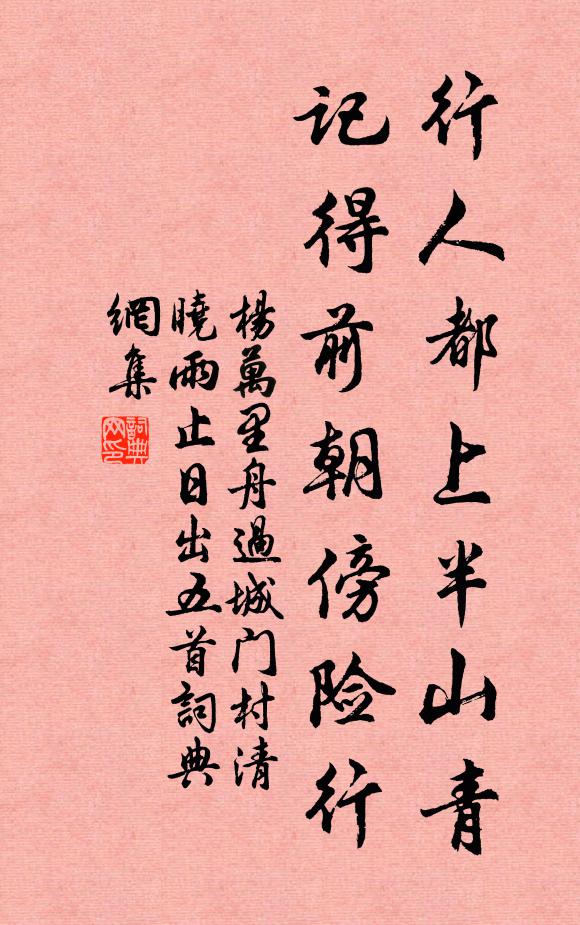 行人都上半山青
记得前朝傍险行
楊萬里舟過城门村清
曉雨止日出五首詞典
網集
詞典
网印